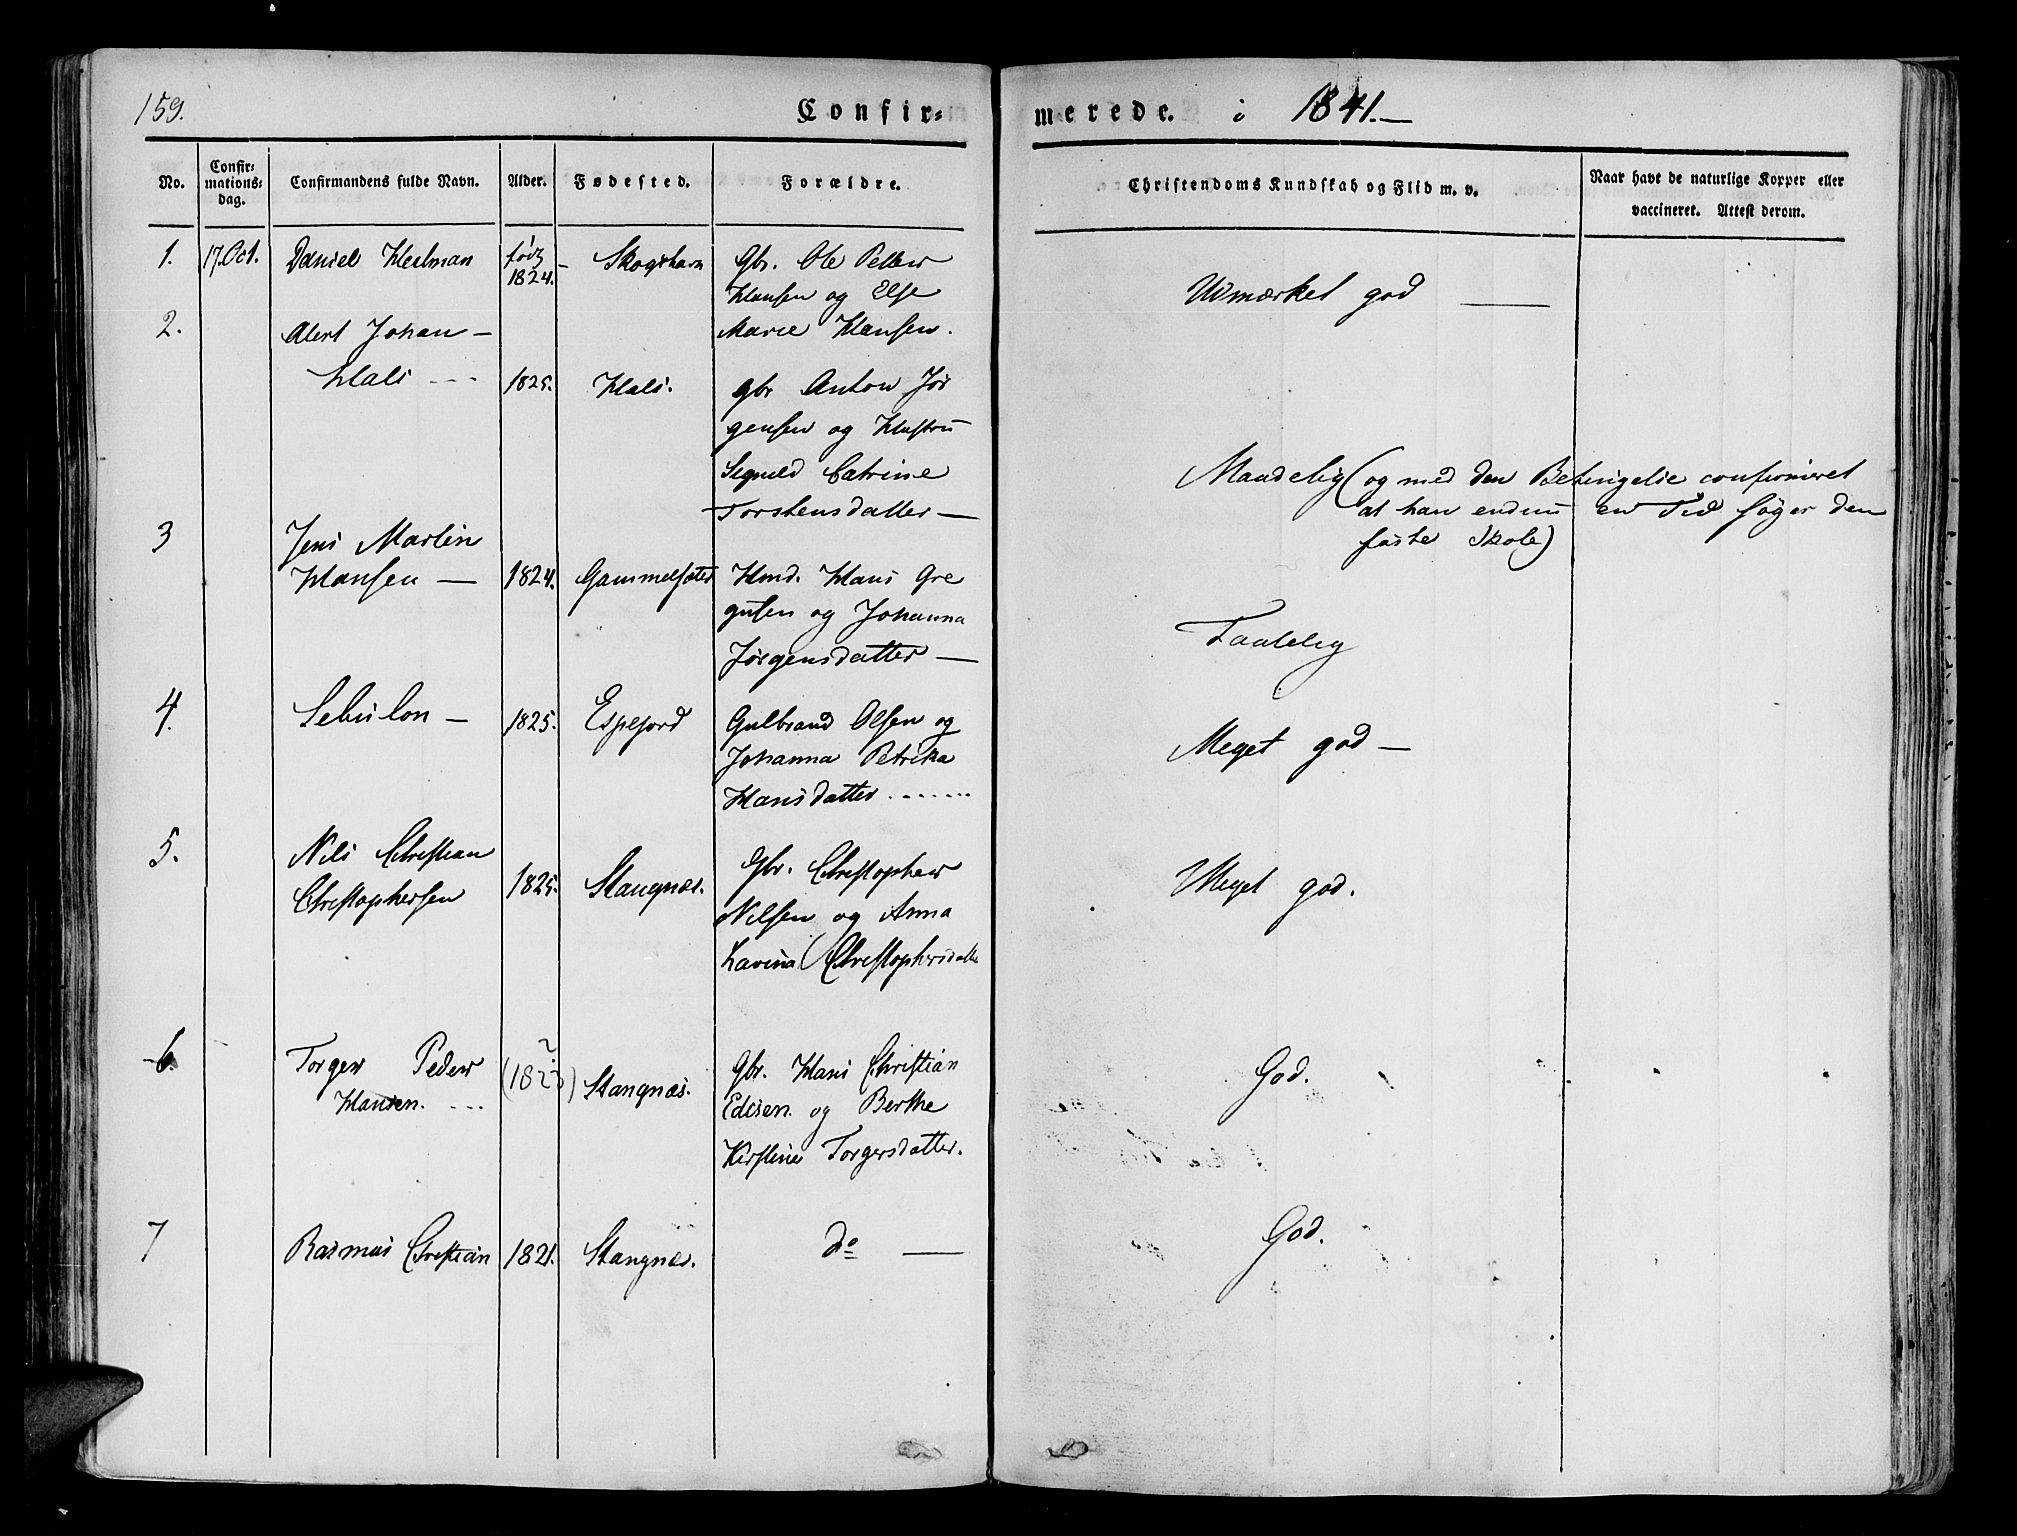 159.
Confir=
merede. i 1841.—
No.
Confir=
mations=
dag.
Confirmandens fulde Navn.
Alder.
Fødested.
Forældre.
Christendoms Kundskab og Flid m. v.
Naar havt de naturlige Kopper eller
vaccineret. Attest derom.
1. 17. Oct. Daniel født Skogshavn Gbr. Ole Petter
1824.
Hansen og Else
Marie Hansen.
Udmærket god —
2. Johan —
Hals - - - 1825. Hals. gbr Anton Jør
gensen og Hustru
Catrine
Torstensdatter —
Maadelig (og med den Betingelse confirmeret
at han endnu en Tid søger den
faste Skole)
3 Jens Martin
Hansen — 1824. Gammelsæter Hmd. Hans Gre
og Johanna
Jørgensdatter —
Taalelig
4. Sebulon — 1825. Espejord Gulbrand Olsen og
Johanna Petrika
Hansdatter .......
Meget god —
5. Nils Christian
Christophersen 1825. Stangnæs. Gbr. Christopher
Nilsen og Anna
Lavina (Christophersdatte
Meget god.
6. Torger Peder (182 ?) Stangnæs. Gbr. Hans Christian
Hansen. - - -
Edisen. og Berthe
Kirstine Torgersdatter.
God.
7 Rasmus Christian 1821. Stangnæs. do —
God.